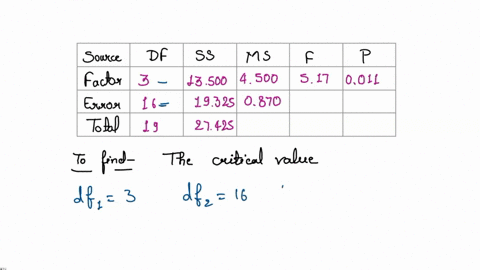 Source DF SS MS F P
Factor 3 - 13.500 4.500 5.17 0.011
Error 16 = 19.325 0.870
Total 19 27.425
To find- The critical value
df1 = 3 df2 = 16